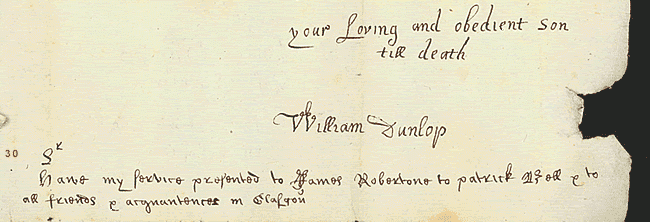 your Loving and obedient son
till death
William Dunlop
30
Sr
Have my service presented to James Robertone to patrick Bell & to
all friends & acquantences in Glasgou